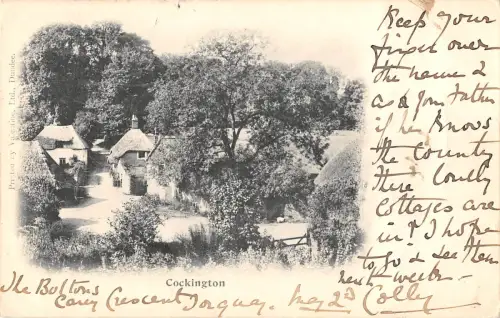 Cockington
Keep your
finger over
the name &
ask your Father
if he knows
the County
these lovely
Cottages are
in? I hope
to go & see them
next week —
The Boltons
Cary Crescent Torquay. May 2nd Colly
Valentine, Ltd., Dundee.